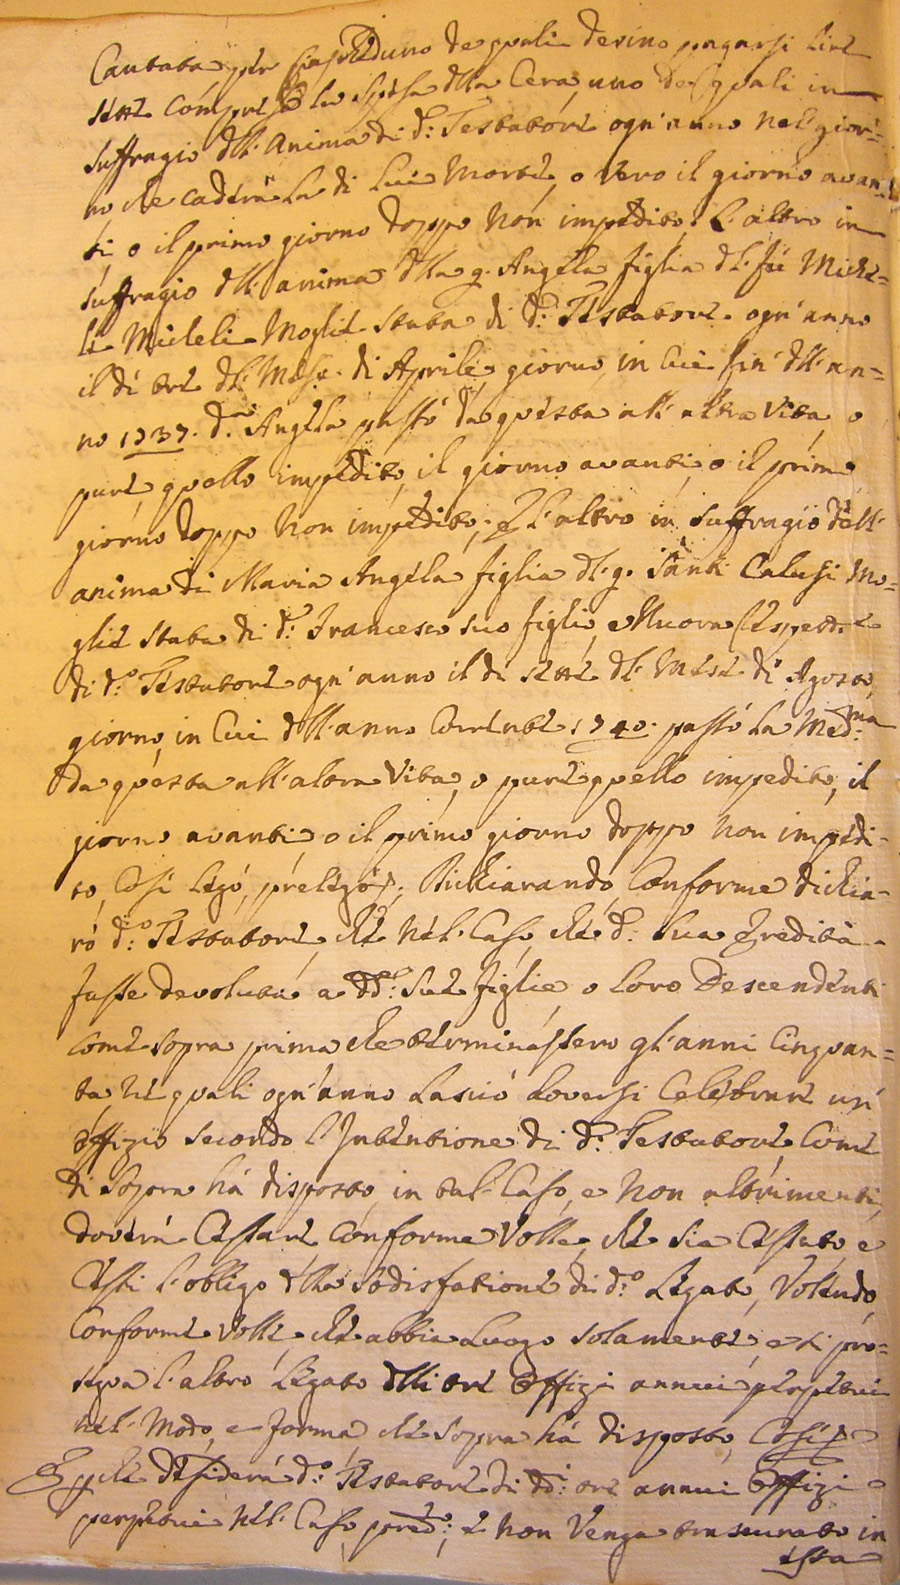 Cantata per ciascheduno de quali devino pagarsi lire
sette compresa la spesa dlla Cera, uno de quali in
suffragio dll' Anima di d.o Testatore ogn' anno nel gior=
no che caderà La di Lui Morte, o vero il giorno avan=
ti o il primo giorno doppo Non impedito. L' altro in
suffragio dll' anima dlla q. Angela figlia dl' fù Miche=
le Micheli Moglie stata di d.o Testatore ogn' anno
il dì tre dl' Mese di Aprile giorno, in Cui fin' dll' an=
no 1737. d.a Angela passò da questa all' altra Vita, o
pure, quello impedito, il giorno avanti, o il primo
giorno doppo Non impedito; E L' altro in suffragio dell'
anima di Maria Angela figlia dl' q. Santi Calusi Mo=
glie stata di d.o Francesco suo figlio, e Nuora respett.e
di d.o Testatore ogn' anno il dì sette dl' Mese di Agosto,
giorno, in Cui dll' anno Corrente 1740. passò La Med.ma
da questa all' altra Vita, o pure quello impedito, il
giorno avanti, o il primo giorno doppo Non impedi=
to, Così Legò, prelegò; Dichiarando, Conforme dichia=
rò d.o Testatore, che Nel' Caso, che d.a sua Eredità
fusse devoluta a dd.e sue figlie, o loro Descendenti
come sopra prima che terminassero gl' anni Cinquan=
ta ne quali ogn' anno Lasciò doversi Celebrare un'
offizio secondo l' Intentione di d.o Testatore, Come
di Sopra hà disposto, in tal' Caso, e Non altrimenti,
dovrà Cessare Conforme Volle, che sia Cessato, e
Cessi L' obligo dlla sodisfatione di d.o Legato, Volendo
Conforme Volle, che abbia Luogo solamente, e si pro=
segua l' altro Legato dlli tre Offizi annui perpetui
nel' Modo, e forma, che sopra hà disposto, Così
E perche desidera d.o Testatore di dd.i tre annui Offizi
perpetui Nel' Caso pred.o; e Non Venga trascurato in
essa